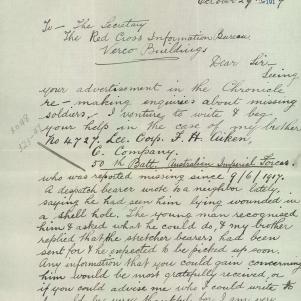 October 29th 1917
To - The Secretary
The Red Cross Information Bureau
Verco Buildings
Dear Sir -
Seeing
your advertisement in the Chronicle
re - making enquiries about missing
soldiers, I venture to write & beg
your help in the case of my brother
No 4727. Lce. Corp. F. H. Aitken,
C. Company.
50th Batt. Australian Imperial Forces.
who was reported missing since 9/6/1917.
A despatch bearer wrote to a neighbor lately,
saying he had seen him lying wounded in
a shell hole. The young man recognised
him & asked what he could do, & my brother
replied that the stretcher bearers had been
sent for & he expected to be picked up soon.
Any information that you could gain concerning
him would be most gratefully received, or
if you could advise me who I could write to
be very thankful for I am very